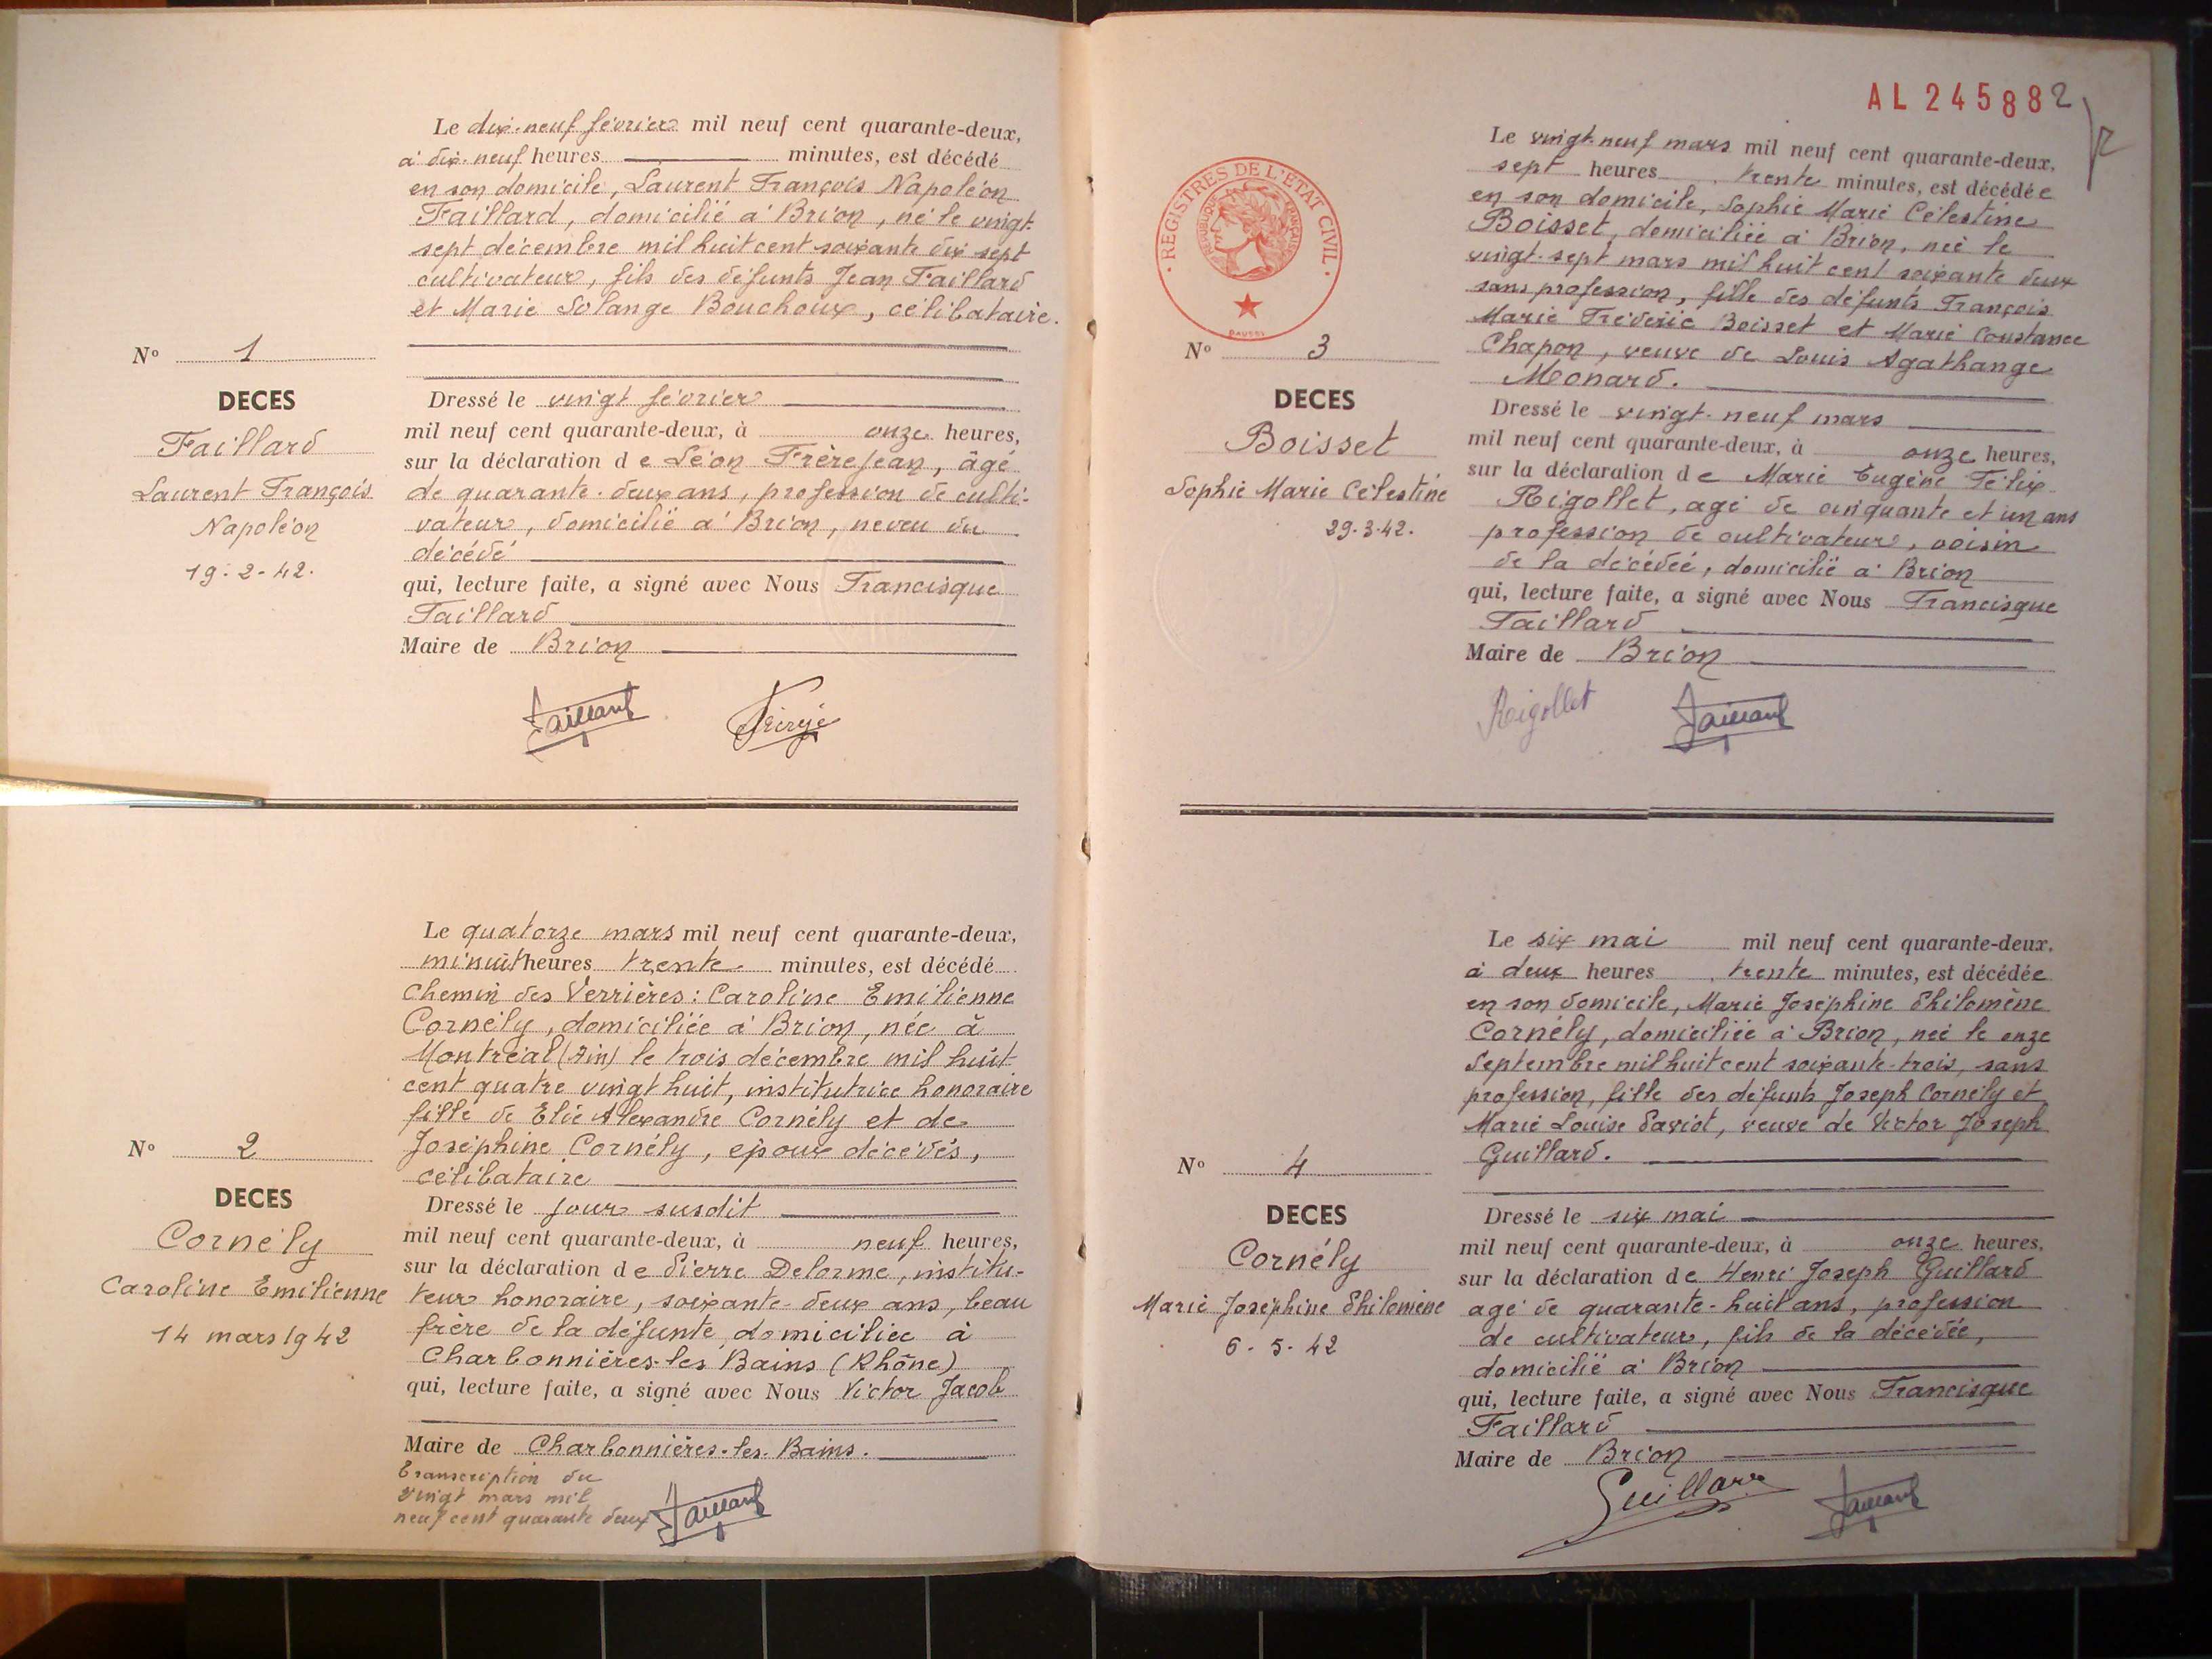 Le dix-neuf février mil neuf cent quarante-deux,
à dix-neuf heures minutes, est décédé
en son domicile, Laurent François Napoléon
Faillard, domicilié à Brion, né le vingt-
sept décembre mil huit cent soixante dix sept
cultivateur, fils des défunts Jean Faillard
et Marie Solange Bouchoux, célibataire.
N° 1
DECES
Faillard
Laurent François
Napoléon
19-2-42.
Dressé le vingt février
mil neuf cent quarante-deux, à onze heures,
sur la déclaration de Léon Frèrejean, âgé
de quarante-deux ans, profession de culti-
vateur, domicilié à Brion, neveu du
décédé
qui, lecture faite, a signé avec Nous Francisque
Faillard
Maire de Brion
Faillard
Le quatorze mars mil neuf cent quarante-deux,
minuit heures trente minutes, est décédé
Chemin des Verrières : Caroline Emilienne
Cornély, domiciliée à Brion, née à
Montréal (Ain) le trois décembre mil huit
cent quatre vingt huit, institutrice honoraire
fille de Elie Alexandre Cornély et de
Joséphine Cornély, époux décédés,
célibataire
N° 2
DECES
Cornély
Caroline Emilienne
14 mars 1942
Dressé le jour susdit
mil neuf cent quarante-deux, à neuf heures,
sur la déclaration de Pierre Delorme, institu-
teur honoraire, soixante-deux ans, beau
frère de la défunte, domiciliée à
Charbonnières-les Bains (Rhône)
qui, lecture faite, a signé avec Nous Victor Jacob
Maire de Charbonnières-les-Bains.
Transcription du
vingt mars mil
neuf cent quarante deux
Faillard
AL 245882
REGISTRES DE L'ETAT CIVIL
REPUBLIQUE FRANÇAISE
Le vingt-neuf mars mil neuf cent quarante-deux,
sept heures trente minutes, est décédée
en son domicile, Sophie Marie Célestine
Boisset, domiciliée à Brion, née le
vingt-sept mars mil huit cent soixante deux
sans profession, fille des défunts François
Marie Fréderic Boisset et Marie Constance
Chapon, veuve de Louis Agathange
Monard.
N° 3
DECES
Boisset
Sophie Marie Célestine
29-3-42.
Dressé le vingt-neuf mars
mil neuf cent quarante-deux, à onze heures,
sur la déclaration de Marie Eugène Félix
Rigollet, agé de cinquante et un ans
profession de cultivateur, voisin
de la décédée, domicilié à Brion
qui, lecture faite, a signé avec Nous Francisque
Faillard
Maire de Brion
Rigollet Faillard
Le six mai mil neuf cent quarante-deux,
à deux heures trente minutes, est décédée
en son domicile, Marie Joséphine Philomène
Cornély, domiciliée à Brion, née le onze
Septembre mil huit cent soixante-trois, sans
profession, fille des défunts Joseph Cornély et
Marie Louise Saviot, veuve de Victor Joseph
Guillard.
N° 4
DECES
Cornély
Marie Joséphine Philomène
6-5-42
Dressé le six mai
mil neuf cent quarante-deux, à onze heures,
sur la déclaration de Henri Joseph Guillard
agé de quarante-huit ans, profession
de cultivateur, fils de la décédée,
domicilié à Brion
qui, lecture faite, a signé avec Nous Francisque
Faillard
Maire de Brion
Guillard Faillard